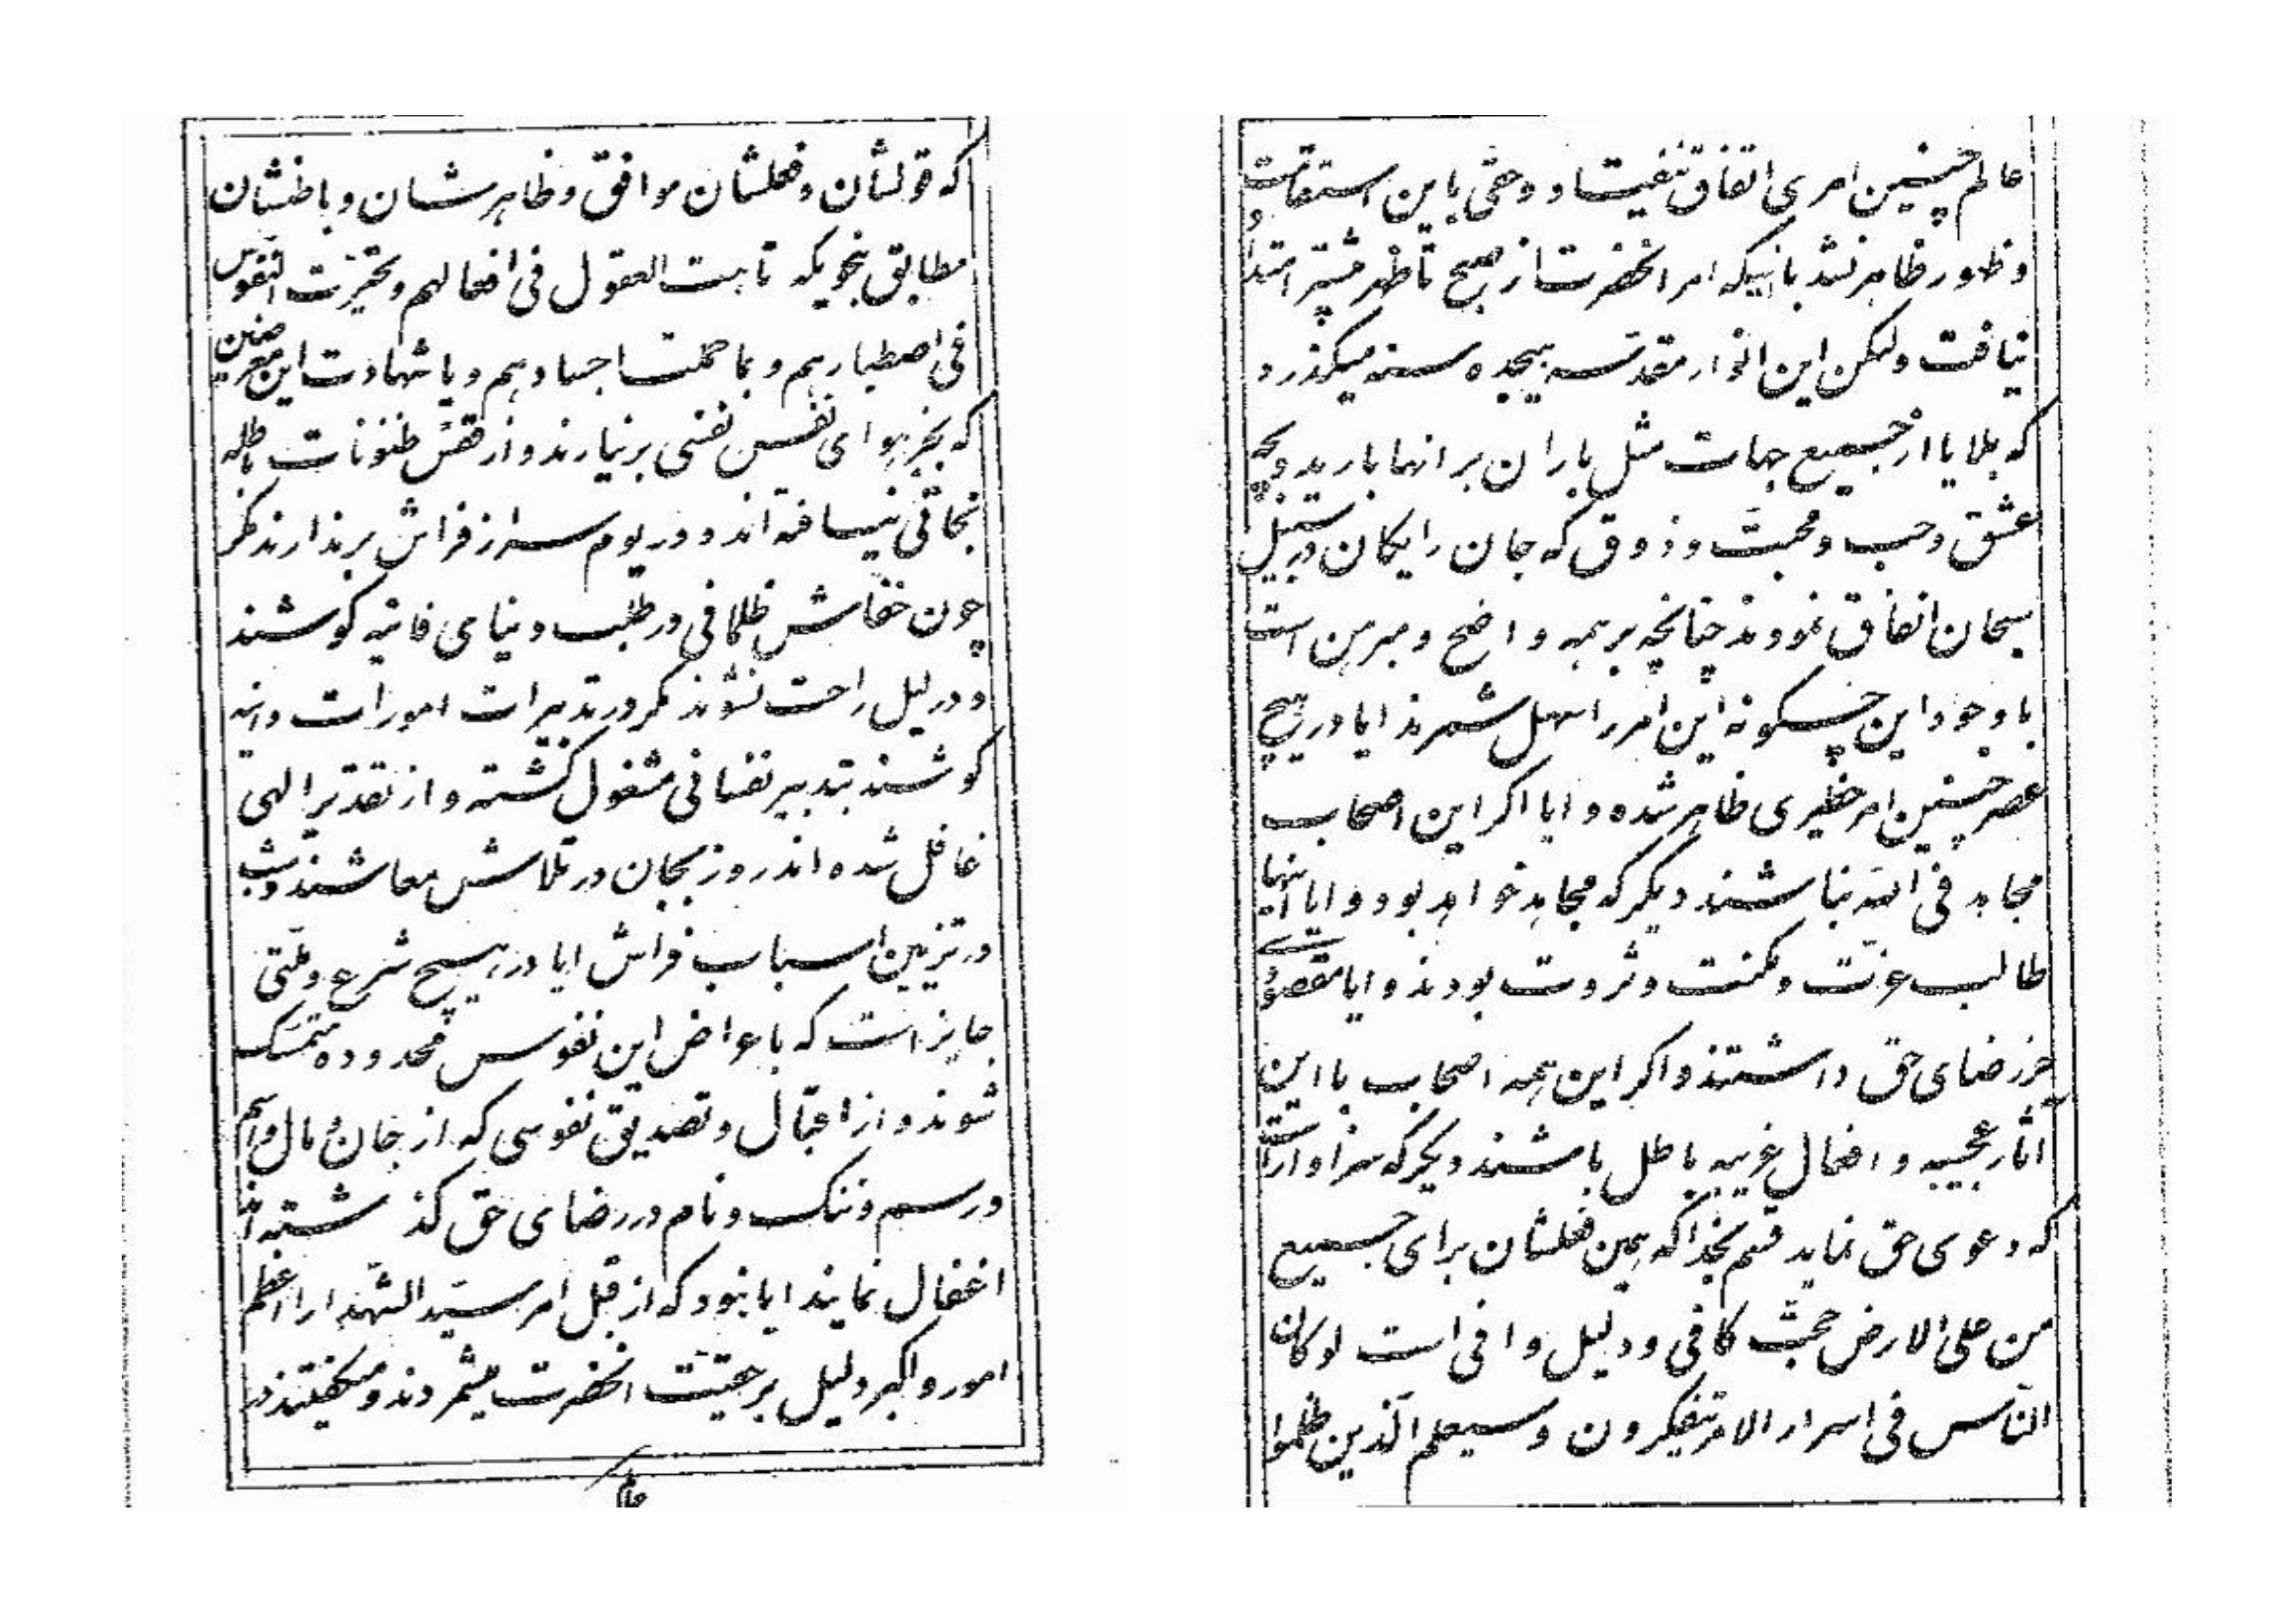 که قولشان و فعلشان موافق و ظاهرشان و باطنشان
مطابق بنحویکه تاهت العقول فی افعالهم و تحیّرت النفوس
فی اصطبارهم و بما حملت اجسادهم و یا شهادت این معرضین
که بجز هوای نفس نفسی برنیارند و از قفس ظنونات باطله
نجاتی نیافته‌اند و در یوم سر از فراش برندارند مگر
چون خفاش ظلمانی در طلب دنیای فانیه کوشند
و در لیل راحت نشوند مگر در تدبیرات امورات دانیه
کوشند بتدبیر نفسانی مشغول گشته و از تقدیر الهی
غافل شده‌اند روز بجان در تلاش معاشند و شب
در تزیین اسباب فراش ایا در هیچ شرع و ملّتی
جایز است که باعراض این نفوس محدوده متمسّک
شوند و از اقبال و تصدیق نفوسی که از جان و مال و اسم
و رسم و ننگ و نام در رضای حق گذشته‌اند
اغفال نمایند ایا نبود که از قبل امر سیّد الشهدا را اعظم
امور و اکبر دلیل بر حقیّت انحضرت میشمردند و میگفتند در
عالم
عالم چنین امری اتفاق نیفتاد و حقی باین استقامت
و ظهور ظاهر نشد با اینکه امر انحضرت از صبح تا ظهر بیشتر امتداد
نیافت ولکن این انوار مقدّسه هیجده سنه میگذرد
که بلایا از جمیع جهات مثل باران بر انها بارید و بچه
عشق و حب و محبّت و ذوق که جان رایگان در سبیل
سبحان انفاق نمودند چنانچه بر همه واضح و مبرهن است
با وجود این چگونه این امر را سهل شمرند ایا در هیچ
عصر چنین امر خطیری ظاهر شده و ایا اگر این اصحاب
مجاهد فی الله نباشند دیگر که مجاهد خواهد بود و ایا اینها
طالب عزّت و مکنت و ثروت بودند و ایا مقصودی
جز رضای حق داشتند و اگر این همه اصحاب با این
اثار عجیبه و افعال غریبه باطل باشند دیگر که سزاوار است
که دعوی حق نماید قسم بخدا که همین فعلشان برای جمیع
من علی الارض حجّت کافی و دلیل وافی است لو کان
النّاس فی اسرار الامر یتفکرون و سیعلم الّذین ظلموا